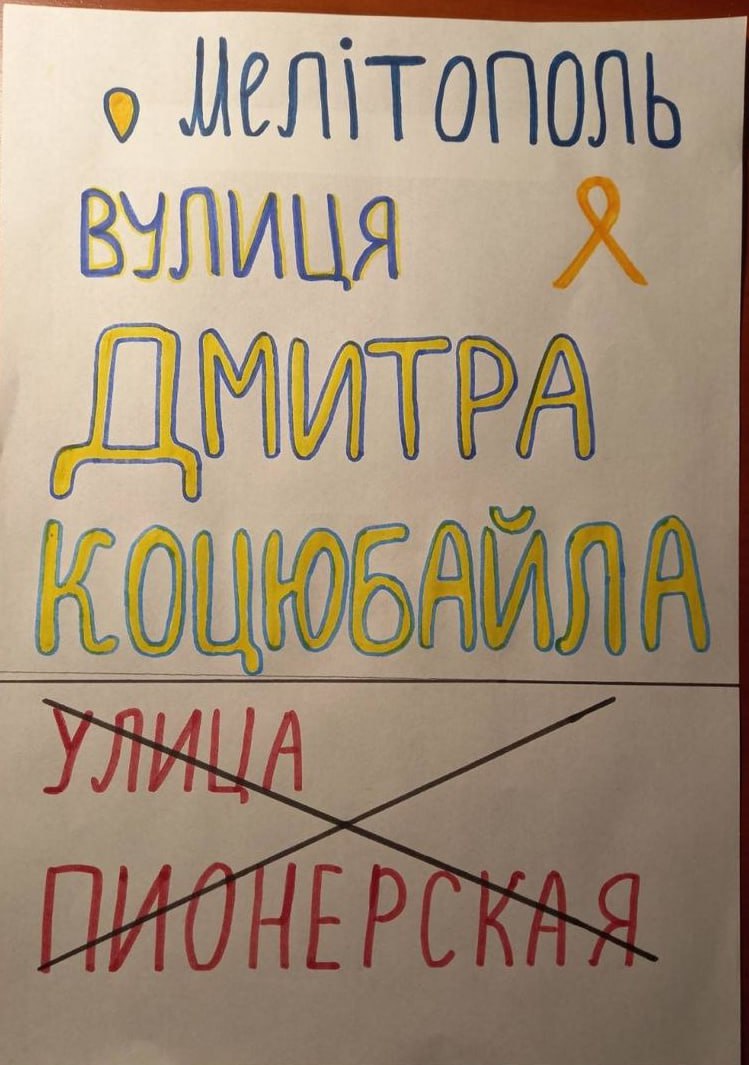 Мелітополь
ВУЛИЦЯ
ДМИТРА
КОЦЮБАЙЛА
УЛИЦА
ПИОНЕРСКАЯ